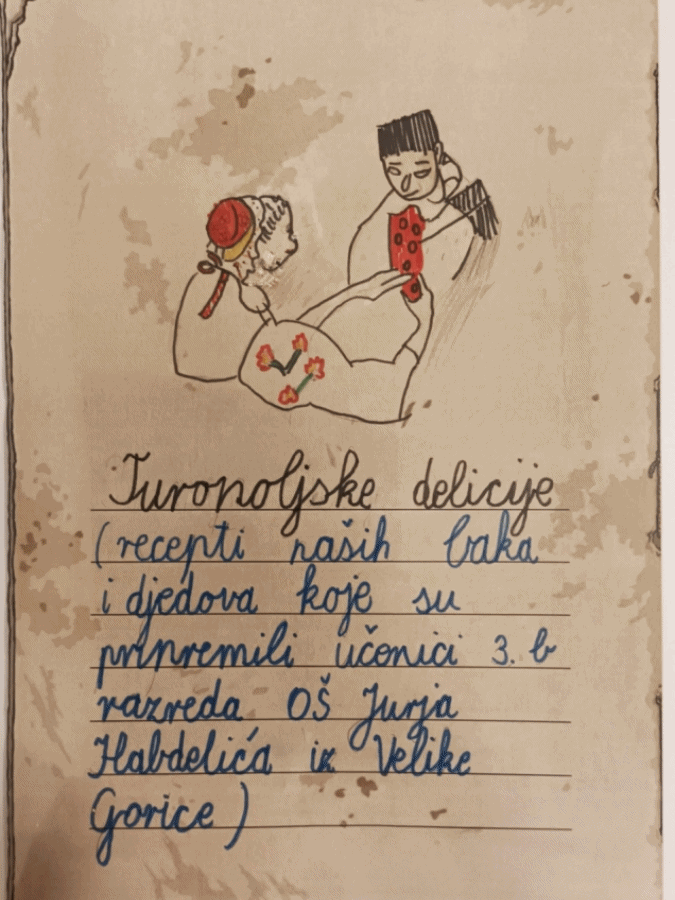 Turopoljske delicije
(recepti naših baka
i djedova koje su
pripremili učenici 3. b
razreda OŠ Jurja
Habdelića iz Velike
Gorice)